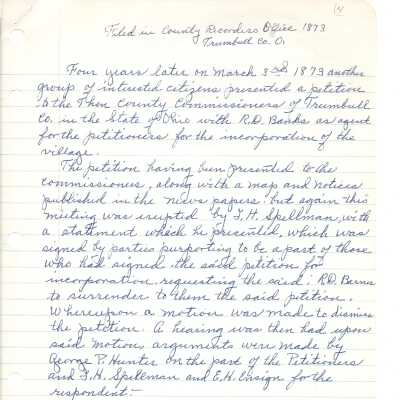 (4
Filed in County Recorders Office 1873
Trumbull Co. O.
Four years later on March 3rd 1873 another
group of intrusted citizens presented a petition
to the Thon County Commissioners of Trumbull
Co. in the State of Ohio with R.D. Banks as agent
for the petitioners for the incorporation of the
village.
The petition having been presented to the
commissiones, along with a map and notices
published in the news papers but again this
meeting was erupted by J.H. Spellman, with
a statement which he presented, which was
signed by parties purporting to be a part of those
who had signed the said petition for
incorporation, requesting the said: R.D. Barnes
to surrender to them the said petition.
Whereupon a motion was made to dismiss
the petition. A hearing was then had upon
said motion, arguments were made by
George P. Hunter on the part of the Petitioners
and J.H. Spellman and E.H. Ensign for the
respondent:-